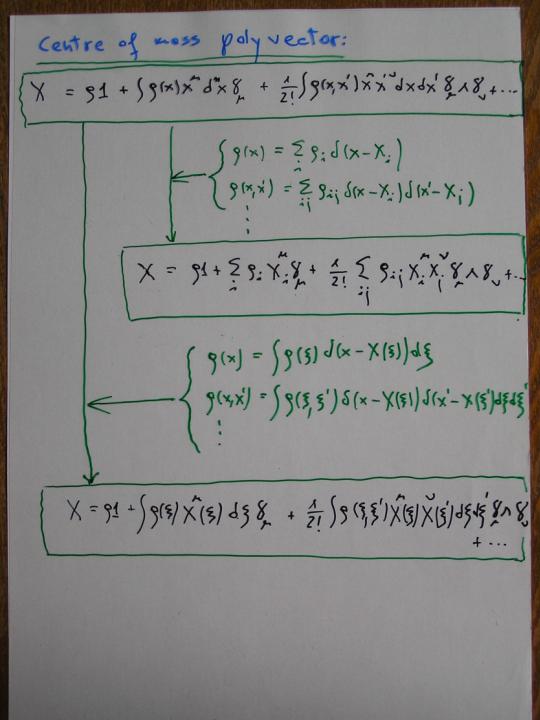 Centre of mass polyvector:
X = ρ1 + ∫ρ(x)x^μ dⁿx γ_μ + 1/2! ∫ρ(x,x')x^μ x'^ν dx dx' γ_μ ∧ γ_ν + ...
ρ(x) = Σ_i ρ_i δ(x-X_i)
ρ(x,x') = Σ_ij ρ_ij δ(x-X_i) δ(x'-X_j)
⋮
X = ρ1 + Σ_i ρ_i X_i^μ γ_μ + 1/2! Σ_ij ρ_ij X_i^μ X_j^ν γ_μ ∧ γ_ν + ...
ρ(x) = ∫ρ(ξ) δ(x - X(ξ)) dξ
ρ(x,x') = ∫ρ(ξ,ξ') δ(x - X(ξ)) δ(x' - X(ξ')) dξ dξ'
⋮
X = ρ1 + ∫ρ(ξ) X^μ(ξ) dξ γ_μ + 1/2! ∫ρ(ξ,ξ') X^μ(ξ) X^ν(ξ') dξ dξ' γ_μ ∧ γ_ν
+ ...